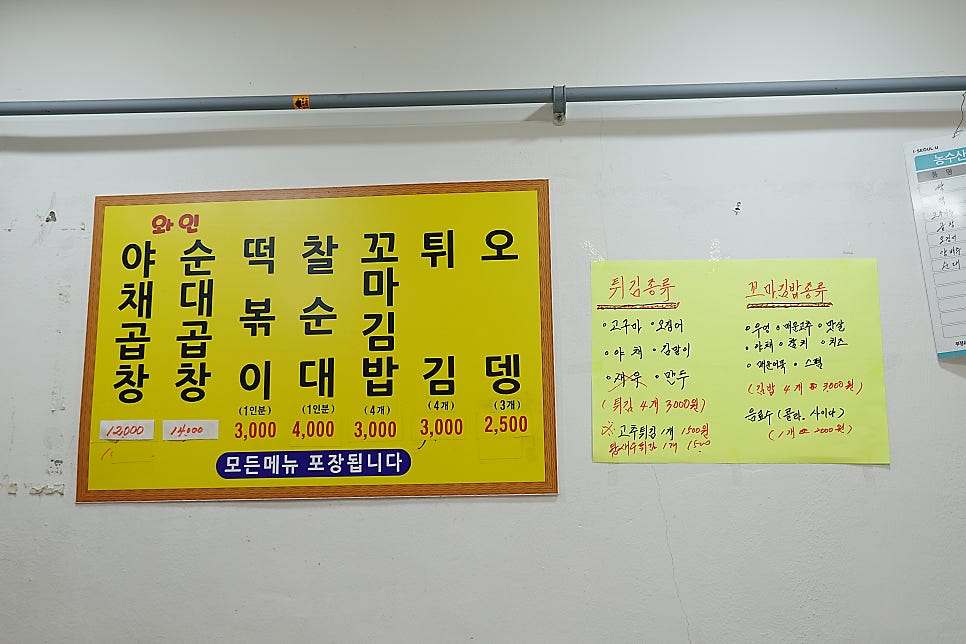 와인
야채곱창
순대곱창
떡볶이
찰순대
꼬마김밥
튀김
오뎅
(1인분)
(1인분)
(4개)
(4개)
(3개)
12,000
14,000
3,000
4,000
3,000
3,000
2,500
모든메뉴 포장됩니다
튀김종류
◦고구마 ◦오징어
◦야채 ◦김말이
◦새우 ◦만두
(튀김 4개 3000원)
※ 고추튀김 1개 1500원
왕새우튀김 1개 1500
꼬마김밥종류
◦우엉 ◦매운고추 ◦맛살
◦야채 ◦참치 ◦치즈
◦매운어묵 ◦스팸
(김밥 4개 3000원)
음료수 (콜라. 사이다)
(1개 2000원)
I·SEOUL·U
농수산
품명
쌀
오징어
순대